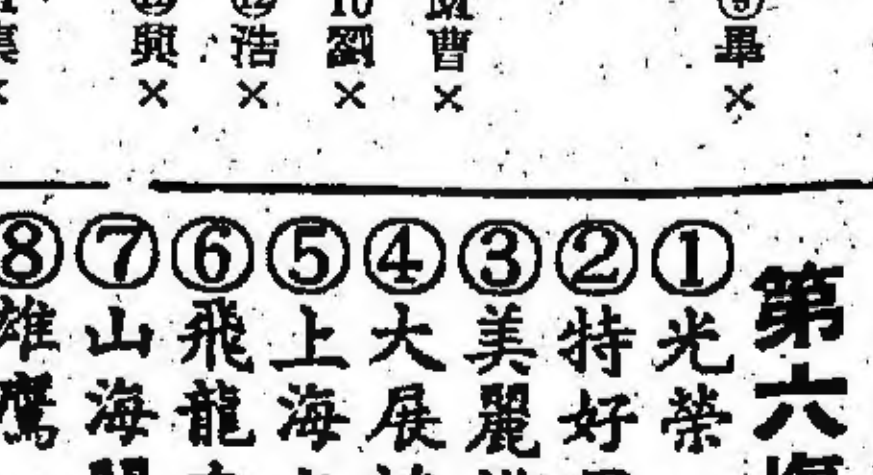 畢×
曹×
10劉×
浩×
興×
第六
①光榮
②特好
③美麗
④大展
⑤上海
⑥飛龍
⑦山海
⑧雄鷹